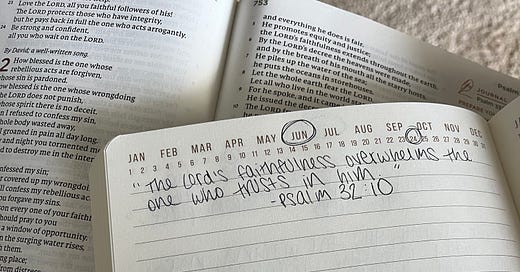 23 Love the LORD, all you faithful followers of his!
The LORD protects those who have integrity,
but he pays back in full the one who acts arrogantly.
24 Be strong and confident,
all you who wait on the LORD.
By David; a well-written song.
2 How blessed is the one whose
rebellious acts are forgiven,
whose sin is pardoned.
how blessed is the one whose wrongdoing
the LORD does not punish,
whose spirit there is no deceit.
I refused to confess my sin,
whole body wasted away,
I groaned in pain all day long.
and night you tormented me
to destroy me in the inter
confessed my sin;
covered up my wrongdoing
I will confess my rebellious
you forgave my sins.
every one of your faithful
should pray to you
a window of opportunity.
the surging water rises,
them.
753
and everything he does is fair.
5 He promotes equity and justice;
the LORD's faithfulness extends throughout the earth.
6 By the LORD's decree the heavens were
and by the breath of his mouth all the starry hosts.
7 He piles up the water of the
he puts the oceans in storehouses.
8 Let the whole earth fear the LORD.
Let all who live in the world
9 For he spoke, and it came
he issued the decree
JOURNAL
Psalm
JAN FEB MAR APR MAY JUN JUL AUG SEP OCT NOV DEC
1 2 3 4 5 6 7 8 9 10 11 12 13 14 15 16 17 18 19 20 21 22 23 24 25 26 27 28 29 30 31
"The Lord's faithfulness overwhelms the
one who trusts in him."
-Psalm 32:10